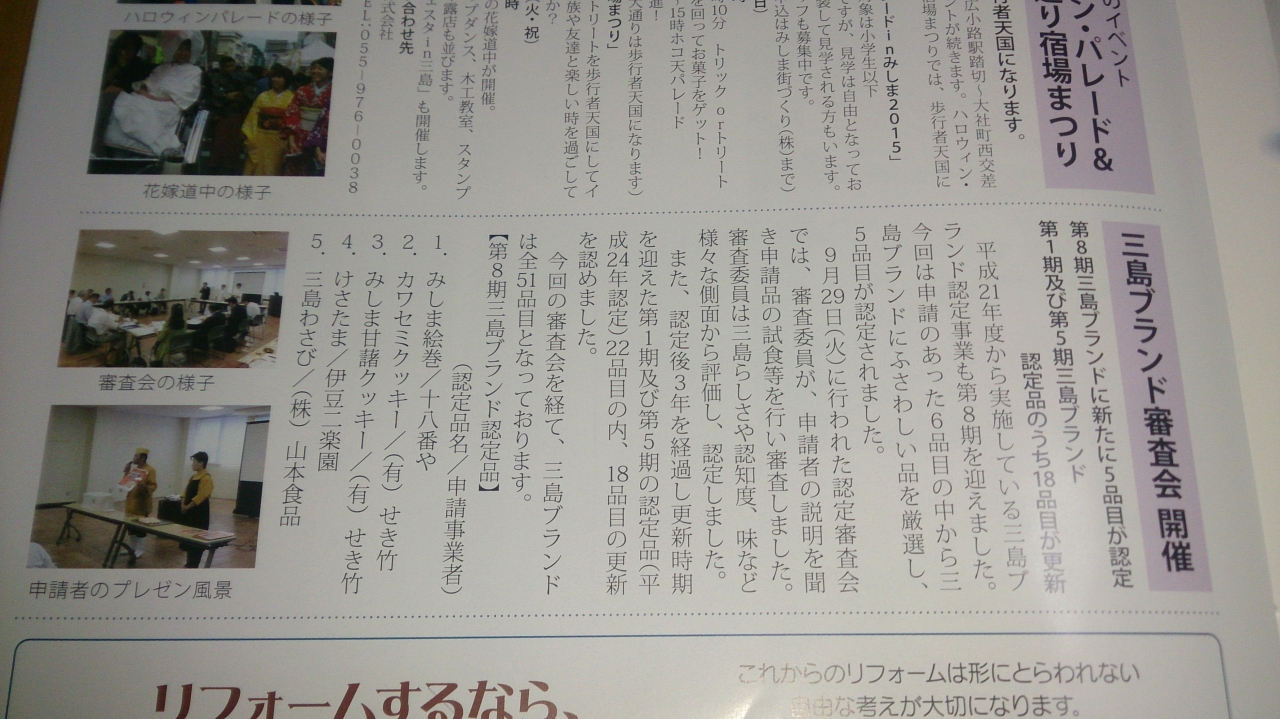 のイベント
ン・パレード&
通り宿場まつり
広小路駅踏切～大社町西交差
ントが続きます。ハロウィン・
場まつりでは、歩行者天国に
行者天国になります。
ードinみしま2015」
対象は小学生以下
ですが、見学は自由となってお
装して見学される方もいます。
フも募集中です。
込はみしま街づくり(株)まで)
日)
時10分 トリック orトリート
を回ってお菓子をゲット!
～15時ホコ天パレード
進!
大通りは歩行者天国になります)
場まつり」
トリートを歩行者天国にしてイ
族や友達と楽しい時を過ごして
か?
(火・祝)
時
の花嫁道中が開催。
プダンス、木工教室、スタンプ
露店も並びます。
ェスタin三島」も開催します。
合わせ先
式会社
TEL・055-976-0038
ハロウィンパレードの様子
花嫁道中の様子
三島ブランド審査会 開催
第8期三島ブランドに新たに5品目が認定
第1期及び第5期三島ブランド
認定品のうち18品目が更新
平成21年度から実施している三島ブ
ランド認定事業も第8期を迎えました。
今回は申請のあった6品目の中から三
島ブランドにふさわしい品を厳選し、
5品目が認定されました。
9月29日(火)に行われた認定審査会
では、審査委員が、申請者の説明を聞
き申請品の試食等を行い審査しました。
審査委員は三島らしさや認知度、味など
様々な側面から評価し、認定しました。
また、認定後3年を経過し更新時期
を迎えた第1期及び第5期の認定品(平
成24年認定)22品目の内、18品目の更新
を認めました。
今回の審査会を経て、三島ブランド
は全51品目となっております。
【第8期三島ブランド認定品】
(認定品名/申請事業者)
1. みしま絵巻/十八番や
2. カワセミクッキー/(有)せき竹
3. みしま甘藷クッキー/(有)せき竹
4. けさたま/伊豆二楽園
5. 三島わさび/(株)山本食品
審査会の様子
申請者のプレゼン風景
これからのリフォームは形にとらわれない
自由な考えが大切になります。
リフォームするなら、